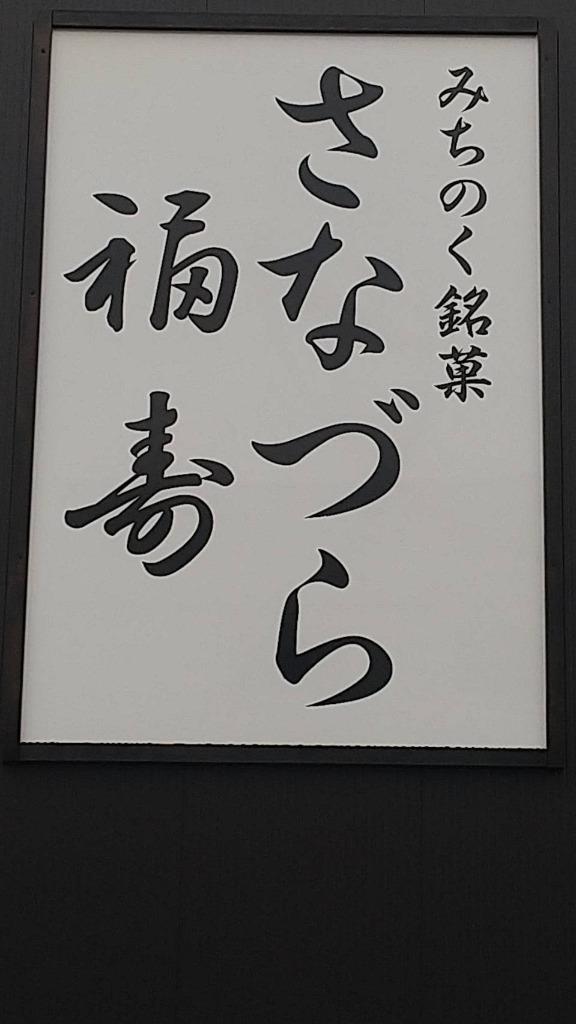 みちのく銘菓
さなづら
福寿